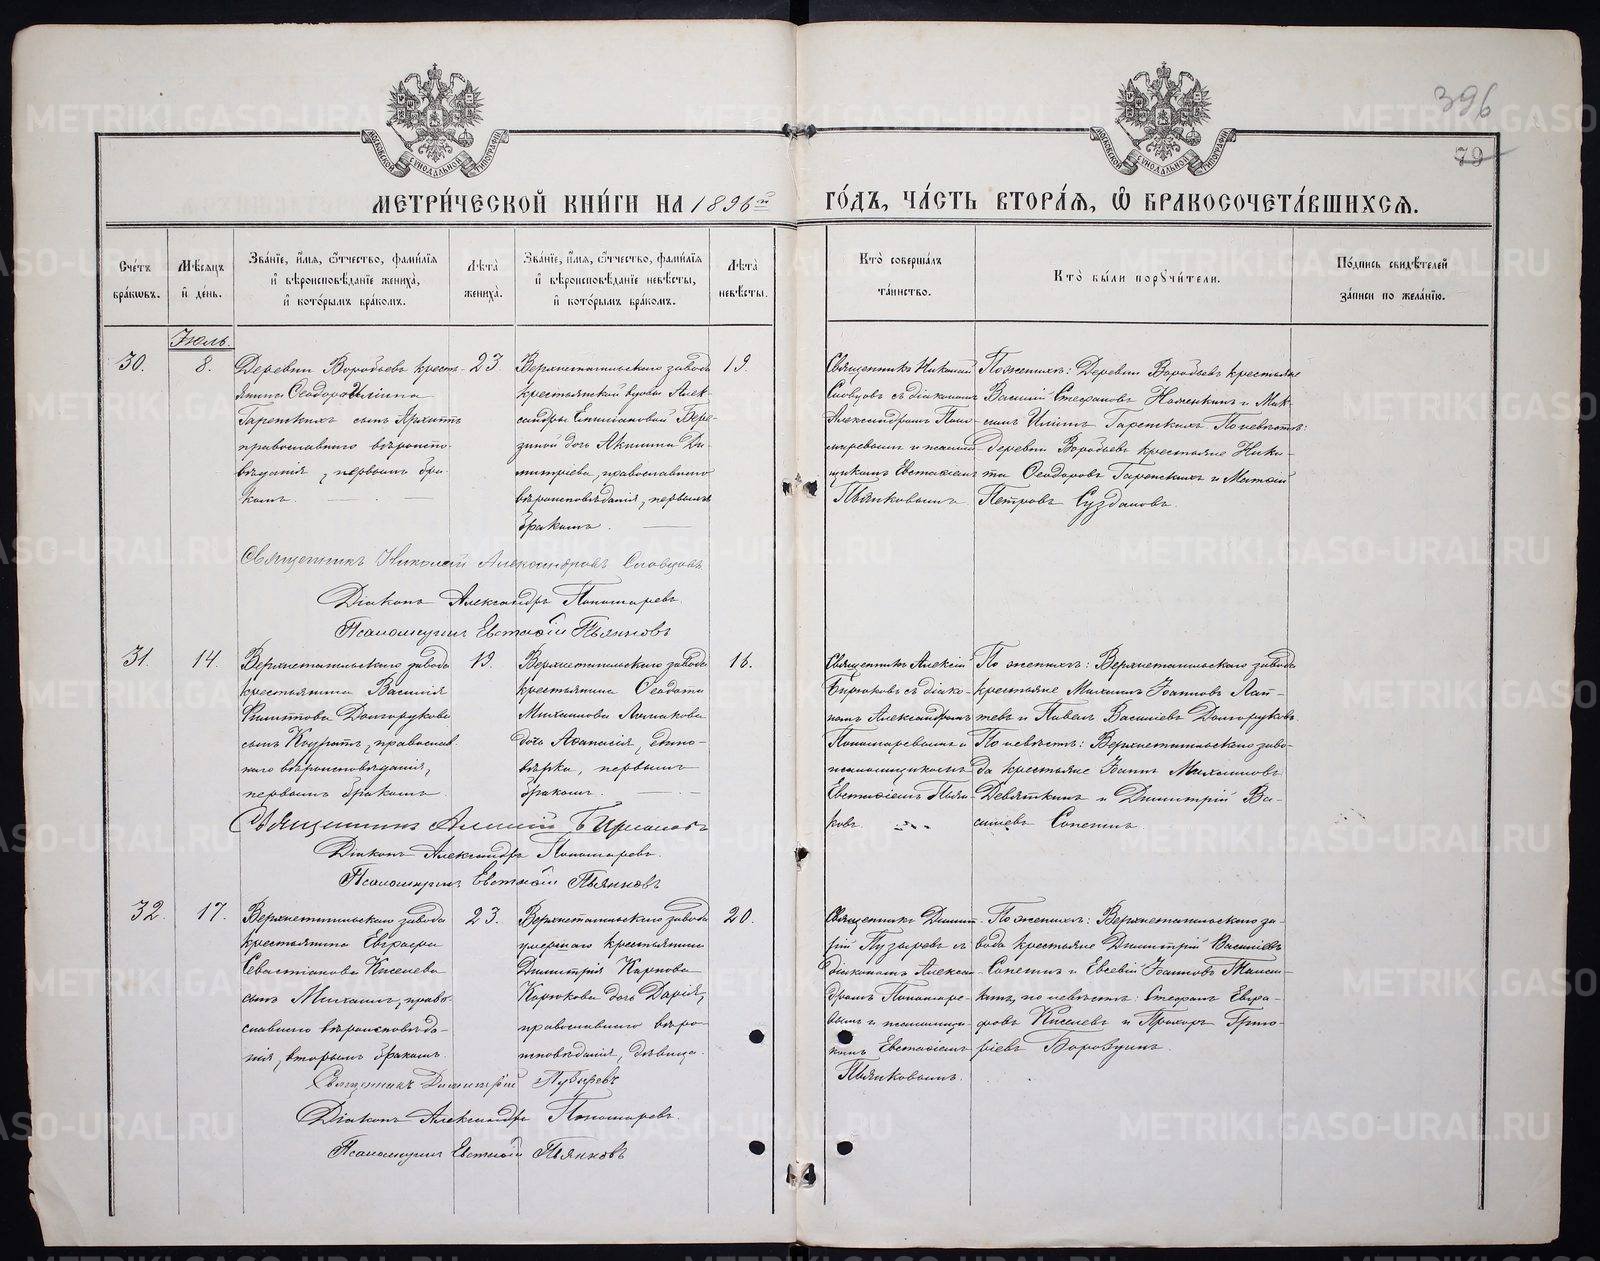 396
79
МЕТРИ́ЧЕСКОЙ КНИ́ГИ НА 1896й ГО́ДЪ, ЧА́СТЬ ВТОРА́Я, Ѡ БРАКОСОЧЕТА́ВШИХСЯ.
Сче́тъ бра́ковъ.
Мѣ́сяцъ и де́нь.
Зва́нїе, и́мя, ѻ́тчество, фами́лїя и вѣроисповѣ́данїе жениха̀, и кото́рымъ бра́комъ.
Лѣ́та жениха̀.
Зва́нїе, и́мя, ѻ́тчество, фами́лїя и вѣроисповѣ́данїе невѣ́сты, и кото́рымъ бра́комъ.
Лѣ́та невѣ́сты.
Кто̀ соверша́лъ та́инство.
Кто̀ бы́ли порꙋчи́тели.
По́дпись свидѣ́телей за́писи по жела́нїю.
Іюль.
30.
8.
Деревни Воробьевъ крестъ-
янина Ѳеодора Ильина
Гареткихъ сынъ Архиппъ
православнаго вѣроиспо-
вѣданія, первымъ бра-
комъ.
23
Верхнетагильскаго завода
крестьянской вдовы Алек-
сандры Епишановой Бере-
зиной дочь Акилина Ди-
митріева, православнаго
вѣроисповѣданія, первымъ
бракомъ.
19.
Священникъ Николай
Словцовъ съ діакономъ
Александромъ Поно-
маревымъ и псалом-
щикомъ Евстафіемъ
Пьянковымъ
По женихѣ: Деревни Воробьевъ крестьяне
Василій Стефановъ и Мак-
симъ Ильинъ Гаретскихъ По невѣстѣ:
деревни Воробьевъ крестьяне Ники-
та Ѳеодоровъ Гаретскихъ и Матѳій
Петровъ Суздаловъ.
Священникъ Николай Александровъ Словцовъ
Діаконъ Александръ Пономаревъ.
Псаломщикъ Евстафій Пьянковъ
31.
14.
Верхнетагильскаго завода
крестьянина Василія
Филиппова Долгорукова
сынъ Кодратъ, православ
наго вѣроисповѣданія,
первымъ бракомъ
19.
Верхнетагильскаго завода
крестьянина Ѳеодота
Михаилова
дочь Аѳанасія, едино-
вѣрка, первымъ
бракомъ.
16.
Священникъ Алексій
Бирюковъ съ діако-
номъ Александромъ
Пономаревымъ и
псаломщикомъ
Евстафіемъ Пьян-
ковъ.
По женихѣ: Верхнетагильскаго завода
крестьяне Михаилъ Іоанновъ Лап-
тевъ и Павелъ Василіевъ Долгоруковъ.
По невѣстѣ: Верхнетагильскаго заво-
да крестьяне Іоаннъ Михаиловъ
Девяткинъ и Димитрій Ва-
силіевъ Сопетинъ.
Священникъ Алексій Бирюковъ
Діаконъ Александръ Пономаревъ.
Псаломщикъ Евстафій Пьянковъ
32.
17.
Верхнетагильскаго завода
крестьянина Евграфа
Севастіанова Киселева
сынъ Михаилъ, право-
славнаго вѣроисповѣда-
нія, вторымъ бракомъ.
23.
Верхнетагильскаго завода
умершаго крестьянина
Димитрія Карпова
Корюкова дочь Дарія,
православнаго вѣро-
исповѣданія, дѣвица.
20.
Священникъ Димит-
рій Пузыревъ съ
діакономъ Алексан-
дромъ Пономаре-
вымъ и псаломщи-
комъ Евстафіемъ
Пьянковымъ.
По женихѣ: Верхнетагильскаго за-
вода крестьяне Димитрій Василіевъ
Сопетинъ и Евсевій Іоанновъ
по невѣстѣ: Стефанъ Евгра-
фовъ Киселевъ и Прохоръ Григо-
ріевъ
Священникъ Димитрій Пузыревъ
Діаконъ Александръ Пономаревъ.
Псаломщикъ Евстафій Пьянковъ
METRIKI.GASO-URAL.RU